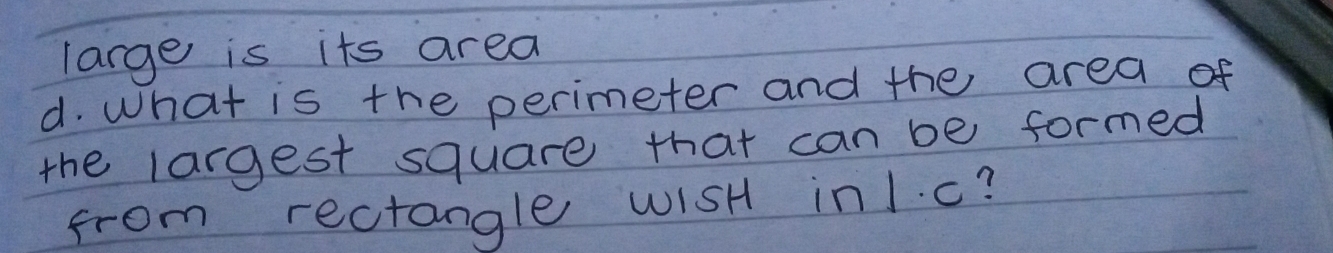 large is its area
d. What is the perimeter and the area of
the largest square that can be formed
from rectangle WISH in 1.c?